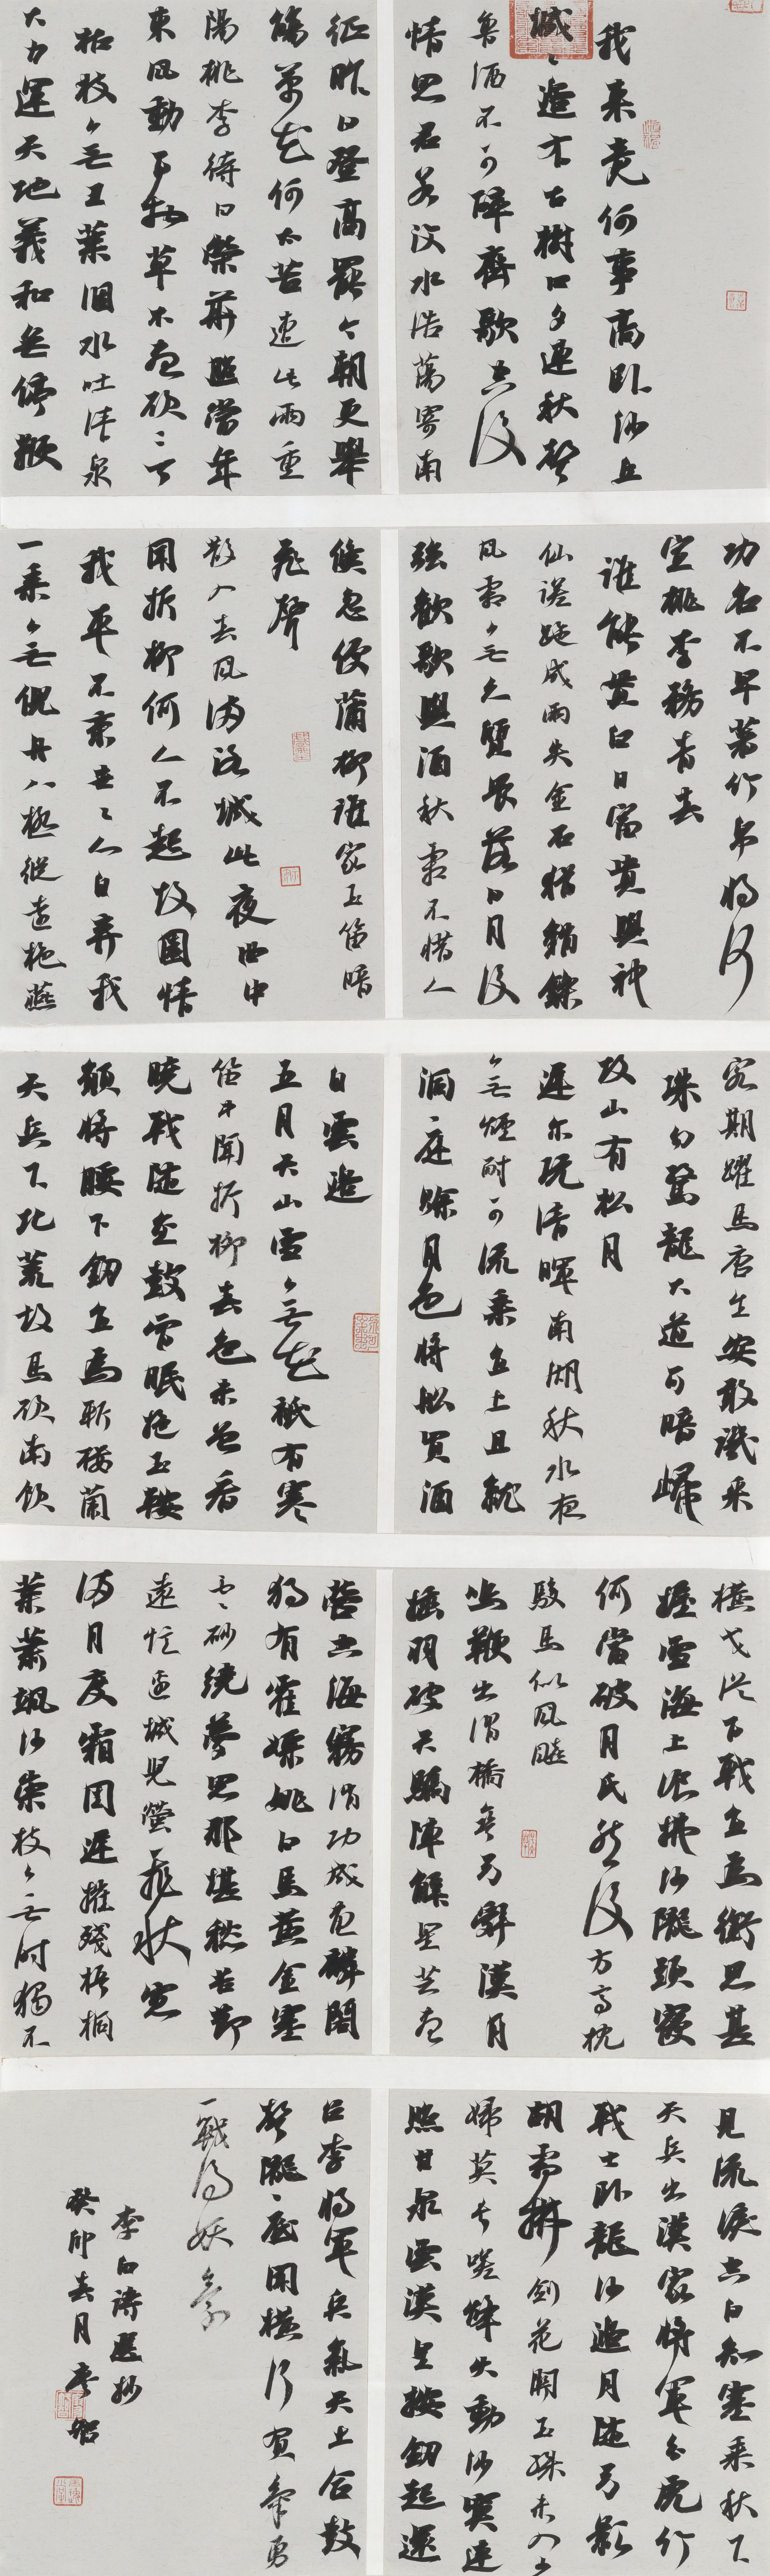 我来竟何事高卧沙丘
城〻邊有古樹日夕連秋聲
魯酒不可醉齊歌空復
情思君若汶水浩蕩寄南
征昨日登高罷今朝更舉
觴菊花何太苦遭此兩重
陽桃李待日榮華照當年
東風動百物草木盡欲〻言
枯枝無丑葉涸水吐清泉
大力運天地羲和無停鞭
功名不早著竹帛將何
宣桃李務青春
誰能貰白日富貴與神
仙蹉跎成兩失金石猶銷鑠
風霜無久質畏落日月後
強歡歌與酒秋霜不惜人
倏忽侵蒲柳誰家玉笛暗
飛聲
散入春風滿洛城此夜曲中
聞折柳何人不起故園情
我平不棄世〻人自棄我
一乘無倪舟八極縱遠柂燕
客期躍馬唐生安敢譏采
珠勿驚龍大道可暗歸
故山有松月
遲尔玩清暉南湖秋水夜
無煙耐可流乘直上且就
洞庭賒月色將船買酒
白雲邊
五月天山雪無花祗有寒
笛中聞折柳春色未曾看
曉戰隨金鼓宵眠抱玉鞍
願將腰下劍直為斬樓蘭
天兵下北荒胡馬欲南飲
橫戈從百戰直為銜恩甚
握雪海上飡拂沙隴頭寢
何當破月氏然後方高枕
駿馬似風飈
鳴鞭出渭橋彎弓辭漢月
插羽破天驕陣解星芒盡
營空海霧消功成畫麟閣
獨有霍嫖姚白馬黃金塞
雲砂繞夢思那堪愁苦節
遠憶邊城兒螢飛秋窗
滿月度霜閨遲摧殘梧桐
葉蕭颯沙棠枝無時獨不
見流淚空自知塞乘秋下
天兵出漢家將軍分虎竹
戰士卧龍沙邊月隨弓影
胡霜拂劍花關玉殊未入少
婦莫長嗟烽火動沙漠連
照甘泉雲漢皇按劍起還
召李將軍兵氣天上合鼓
聲隴底聞橫行負氣勇
一戰淨妖氛
李白詩選抄
癸卯春月李